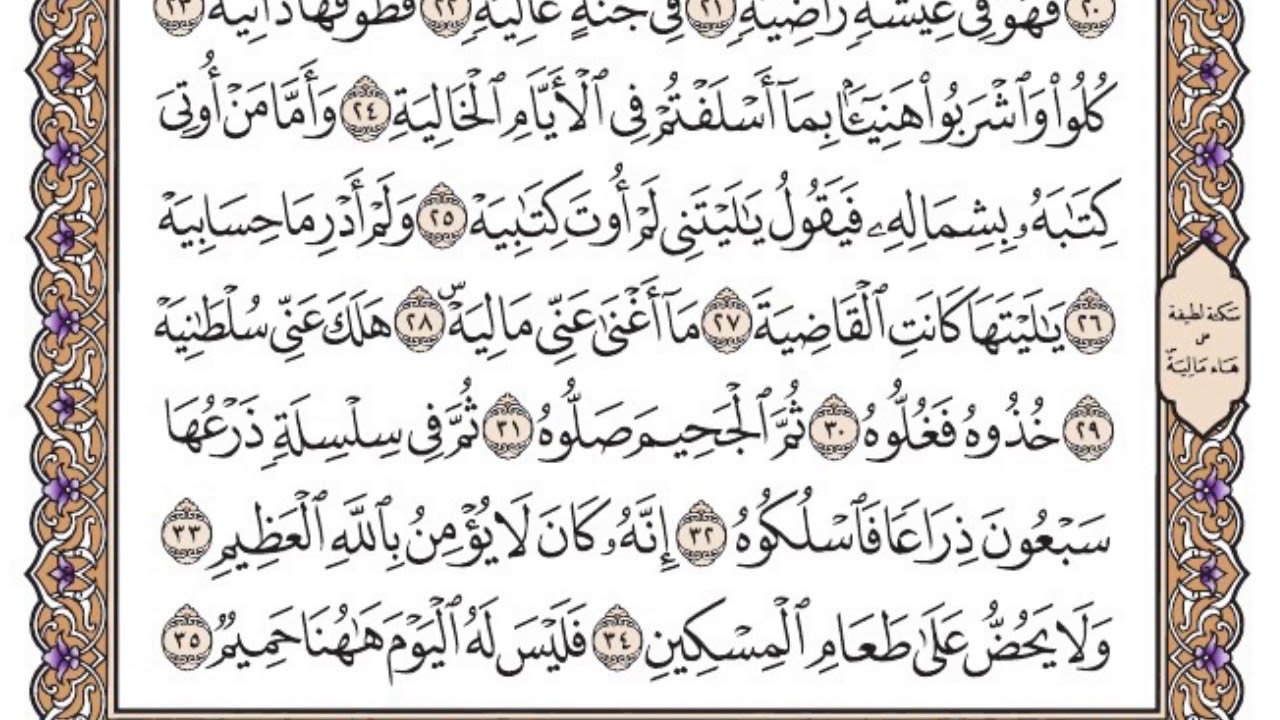 ٢٠ فَهُوَ فِي عِيشَةٖ رَّاضِيَةٖ ٢١ فِي جَنَّةٍ عَالِيَةٖ ٢٢ قُطُوفُهَا دَانِيَةٞ ٢٣
كُلُواْ وَٱشۡرَبُواْ هَنِيٓـَٔۢا بِمَآ أَسۡلَفۡتُمۡ فِي ٱلۡأَيَّامِ ٱلۡخَالِيَةِ ٢٤ وَأَمَّا مَنۡ أُوتِيَ
كِتَٰبَهُۥ بِشِمَالِهِۦ فَيَقُولُ يَٰلَيۡتَنِي لَمۡ أُوتَ كِتَٰبِيَهۡ ٢٥ وَلَمۡ أَدۡرِ مَا حِسَابِيَهۡ
٢٦ يَٰلَيۡتَهَا كَانَتِ ٱلۡقَاضِيَةَ ٢٧ مَآ أَغۡنَىٰ عَنِّي مَالِيَهۡۜ ٢٨ هَلَكَ عَنِّي سُلۡطَٰنِيَهۡ
٢٩ خُذُوهُ فَغُلُّوهُ ٣٠ ثُمَّ ٱلۡجَحِيمَ صَلُّوهُ ٣١ ثُمَّ فِي سِلۡسِلَةٖ ذَرۡعُهَا
سَبۡعُونَ ذِرَاعٗا فَٱسۡلُكُوهُ ٣٢ إِنَّهُۥ كَانَ لَا يُؤۡمِنُ بِٱللَّهِ ٱلۡعَظِيمِ ٣٣
وَلَا يَحُضُّ عَلَىٰ طَعَامِ ٱلۡمِسۡكِينِ ٣٤ فَلَيۡسَ لَهُ ٱلۡيَوۡمَ هَٰهُنَا حَمِيمٞ ٣٥
سَكتة لطيفة
على
هَاء مَالِيَهۡۜ